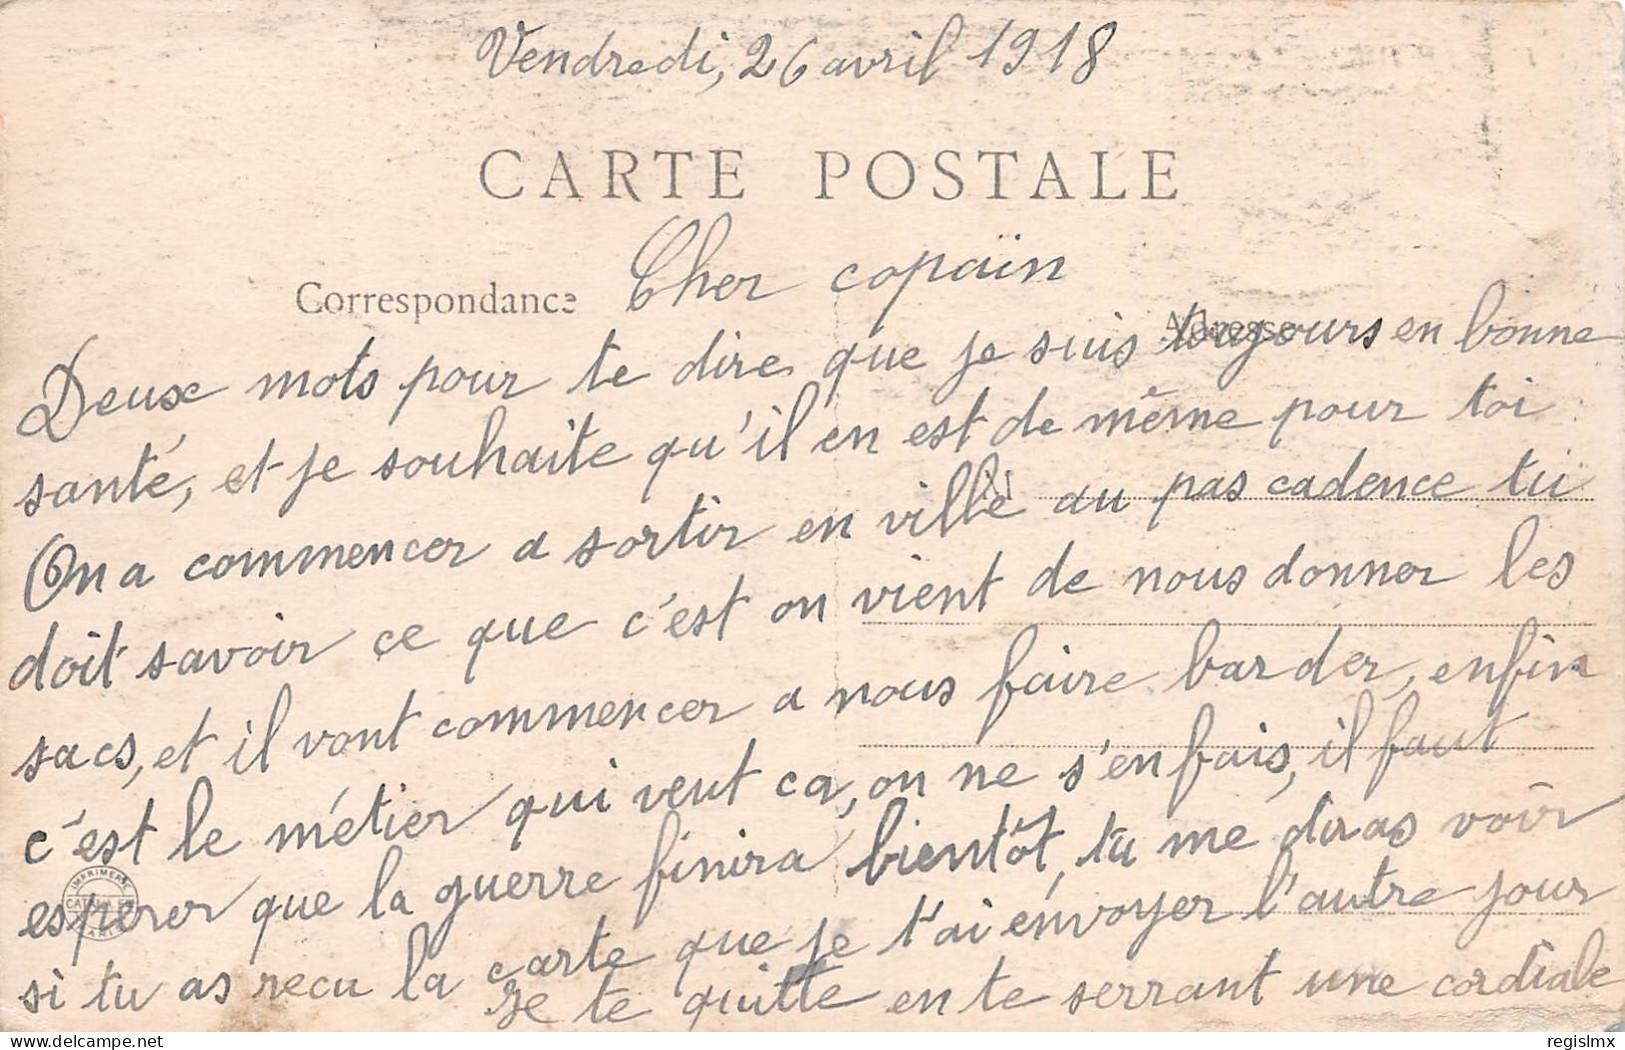 Vendredi, 26 avril 1918
CARTE POSTALE
Correspondance
Adresse
Cher copain
Deux mots pour te dire que je suis toujours en bonne
santé, et je souhaite qu'il en est de même pour toi
On a commencer a sortir en ville au pas cadence tu
doit savoir ce que c'est on vient de nous donner les
sacs, et il vont commencer a nous faire barder, enfin
c'est le métier qui veut ca, on ne s'en fais, il faut
esperer que la guerre finira bientôt, tu me diras voir
si tu as recu la carte que je t'ai envoyer l'autre jour
Je te quitte en te serrant une cordiale
IMPRIMERIE
PARIS
regislmx